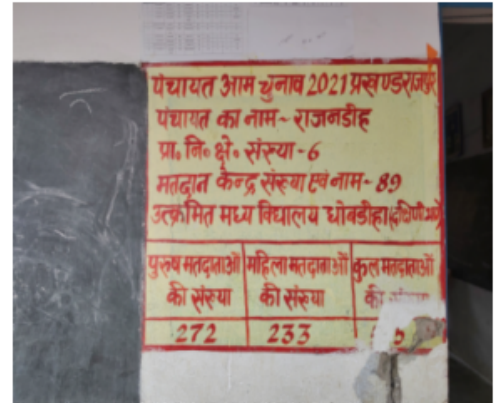 पंचायत आम चुनाव 2021 प्रखण्ड राजपुर
पंचायत का नाम - राजनडीह
प्रा. नि. क्षे. संख्या - 6
मतदान केन्द्र संख्या एवं नाम - 89
उत्क्रमित मध्य विद्यालय घोबडीहा (दक्षिणी भाग)
पुरुष मतदाताओं की संख्या
महिला मतदाताओं की संख्या
कुल मतदाताओं की
272 233 5